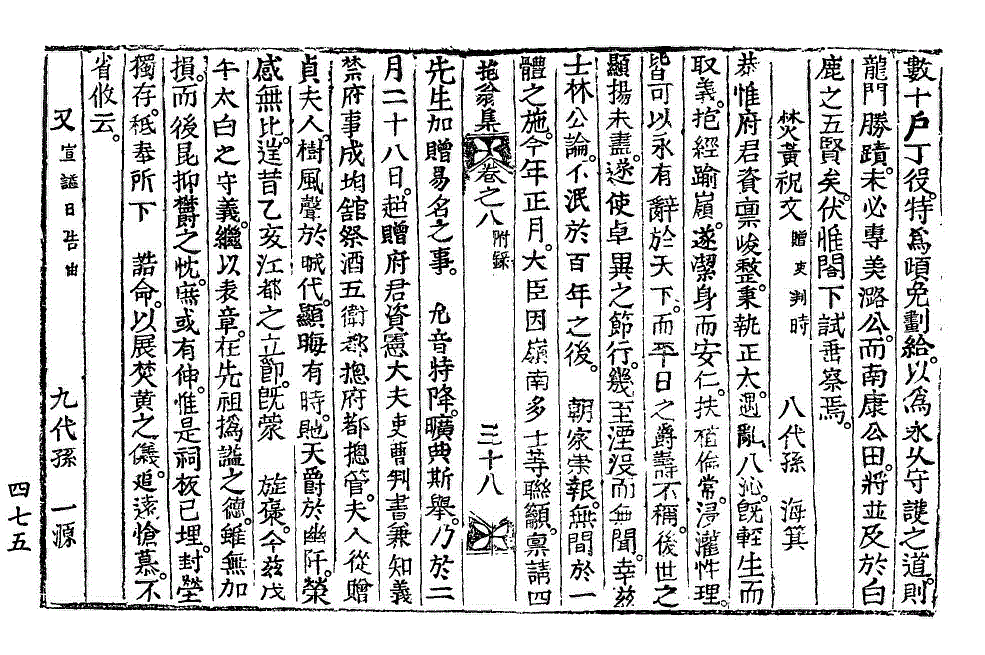 數十戶丁役特爲頉免劃給以爲永久守護之道則
龍門勝蹟未必專美潞公而南康公田將並及於白
鹿之五賢矣伏惟閤下試垂察焉
焚黃祝文 贈吏判時 八代孫 海箕
恭惟府君資稟峻整秉執正大遇亂入沁旣輕生而
取義抱經踰嶺遂潔身而安仁扶植倫常浸灌性理
皆可以永有辭於天下而平日之爵壽不稱後世之
顯揚未盡遂使卓異之節行幾至湮沒而無聞幸玆
士林公論不泯於百年之後 朝家崇報無間於一
體之施今年正月大臣因嶺南多士等聯籲稟請四
翁集 卷之八 附錄 三十八
先生加贈易名之事 允音特降曠典斯舉乃於二
月二十八日超贈府君資憲大夫吏曹判書兼知義
禁府事成均館祭酒五衛都摠府都摠管夫人從贈
貞夫人樹風聲於晠代顯晦有時貤天爵於幽阡榮
感無比逞昔乙亥江都之立節旣蒙 旌褒今玆戊
午太白之守義繼以表章在先祖撝謚之德雖無加
損而後昆抑欝之忱庶或有伸惟是祠板已埋封塋
獨存秪奉所下 誥命以展焚黃之儀追遠愴慕不
省攸云
又 宣謚日告由 九代孫 一源
四七五